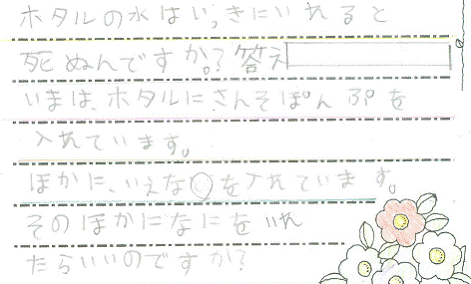 ホタルの水はいっきにいれると
死ぬんですか。？答え
いまは、ホタルにさんそぽんぷを
入れています。
ほかに、いえな◯を入れています。
そのほかになにをいれ
たらいいのですか？